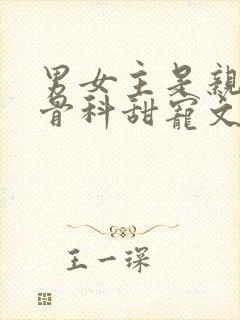 男女主是親
骨科甜寵文
王一琛